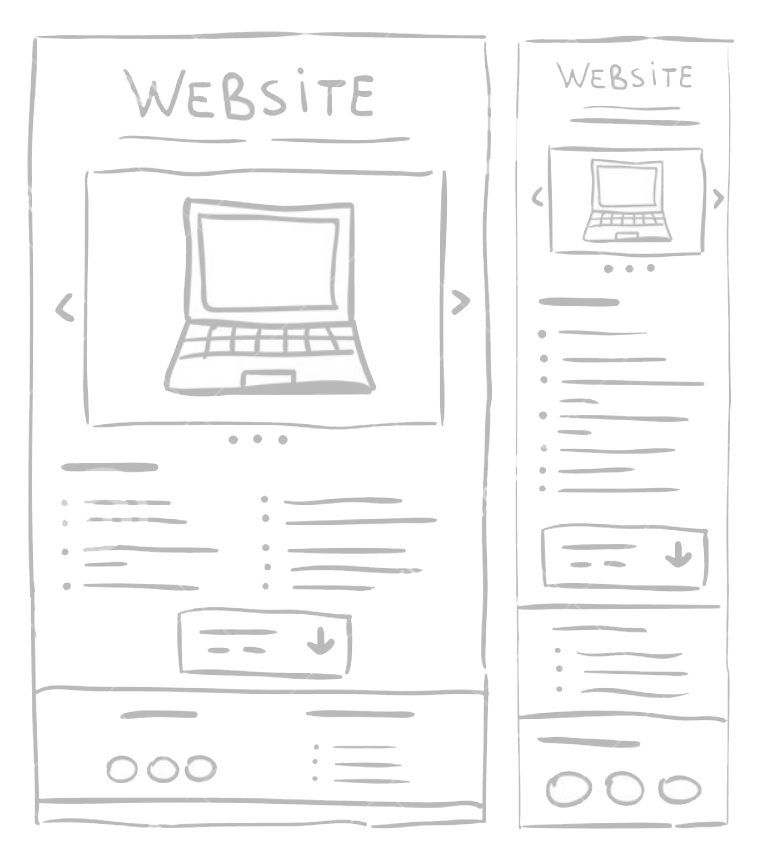 WEBSiTE
WEBSiTE